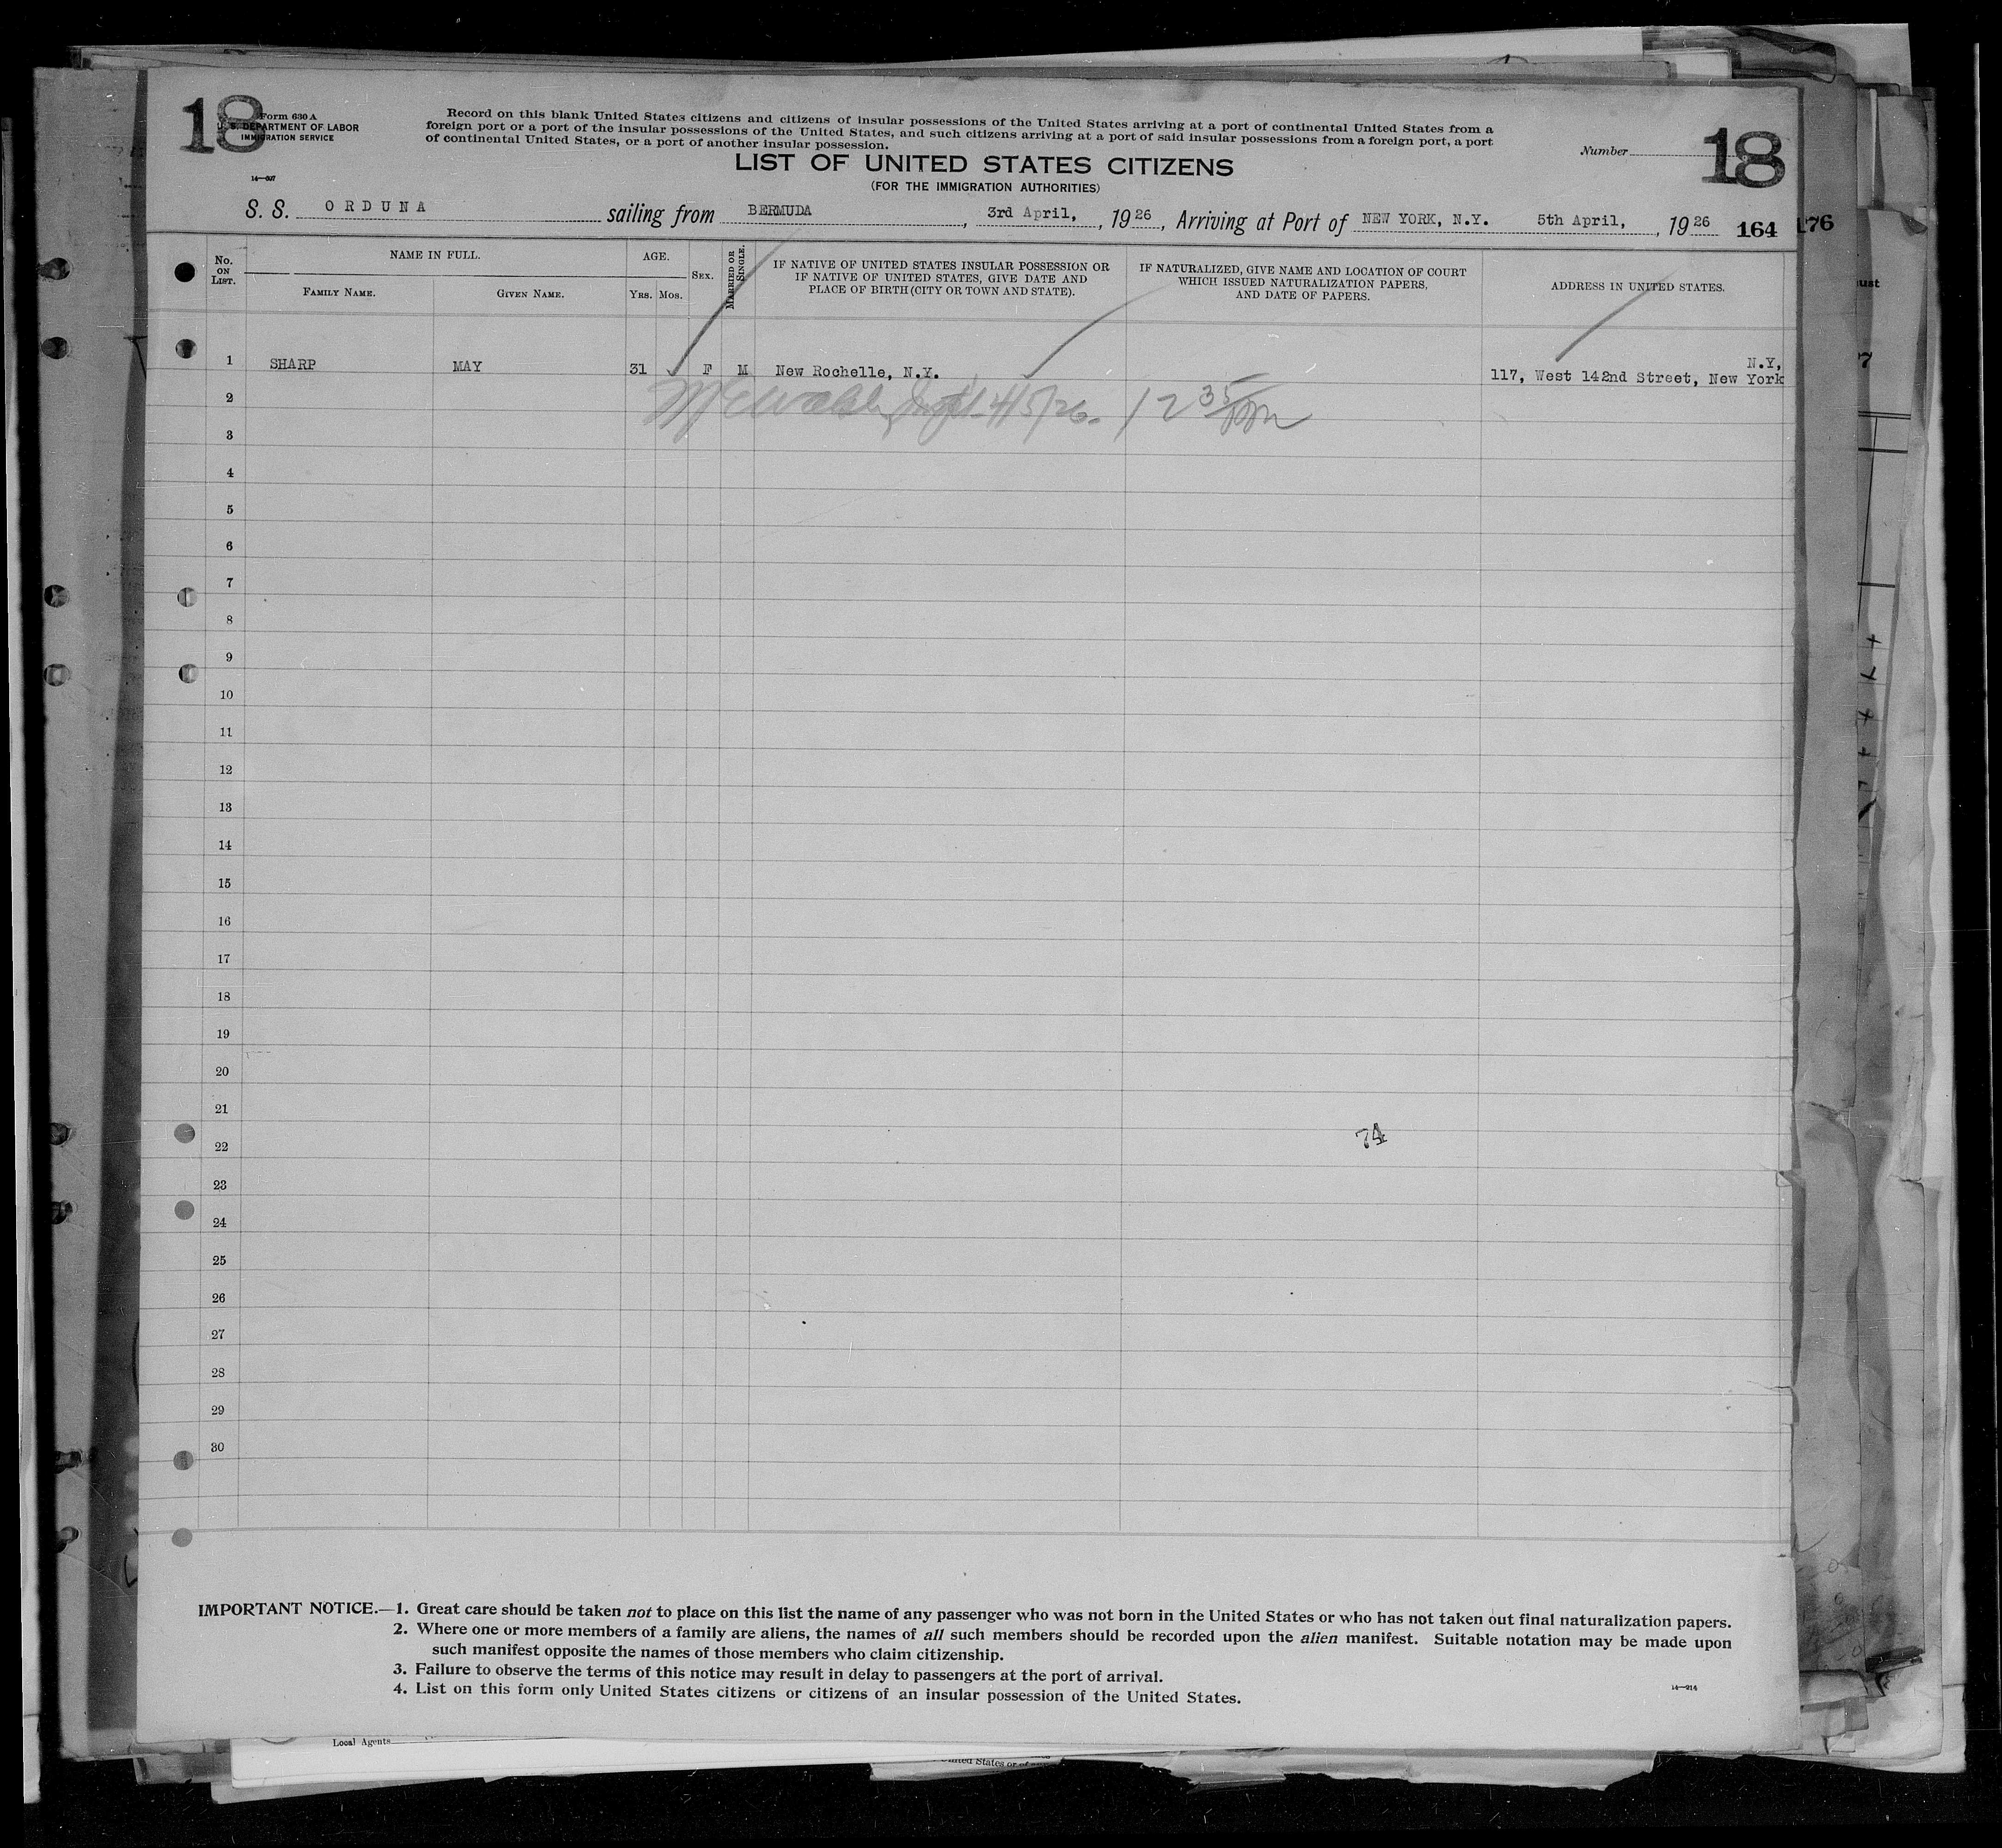 18
Form 630 A
U. S. DEPARTMENT OF LABOR
IMMIGRATION SERVICE
14—607
Record on this blank United States citizens and citizens of insular possessions of the United States arriving at a port of continental United States from a
foreign port or a port of the insular possessions of the United States, and such citizens arriving at a port of said insular possessions from a foreign port, a port
of continental United States, or a port of another insular possession.
Number
18
LIST OF UNITED STATES CITIZENS
(FOR THE IMMIGRATION AUTHORITIES)
S. S. ORDUNA sailing from BERMUDA, 3rd April, , 1926, Arriving at Port of NEW YORK, N.Y. 5th April, , 1926 164 176
No. ON LIST.
NAME IN FULL.
FAMILY NAME.
GIVEN NAME.
AGE.
YRS. MOS.
SEX.
MARRIED OR SINGLE.
IF NATIVE OF UNITED STATES INSULAR POSSESSION OR
IF NATIVE OF UNITED STATES, GIVE DATE AND
PLACE OF BIRTH (CITY OR TOWN AND STATE).
IF NATURALIZED, GIVE NAME AND LOCATION OF COURT
WHICH ISSUED NATURALIZATION PAPERS,
AND DATE OF PAPERS.
ADDRESS IN UNITED STATES.
N.Y,
1 SHARP MAY 31 F M New Rochelle, N.Y. 117, West 142nd Street, New York
2 4/5/26. 12 35 PM
3
4
5
6
7
8
9
10
11
12
13
14
15
16
17
18
19
20
21
22 74
23
24
25
26
27
28
29
30
IMPORTANT NOTICE.—1. Great care should be taken not to place on this list the name of any passenger who was not born in the United States or who has not taken out final naturalization papers.
2. Where one or more members of a family are aliens, the names of all such members should be recorded upon the alien manifest. Suitable notation may be made upon
such manifest opposite the names of those members who claim citizenship.
3. Failure to observe the terms of this notice may result in delay to passengers at the port of arrival.
4. List on this form only United States citizens or citizens of an insular possession of the United States.
14—214
Local Agents
United States or of